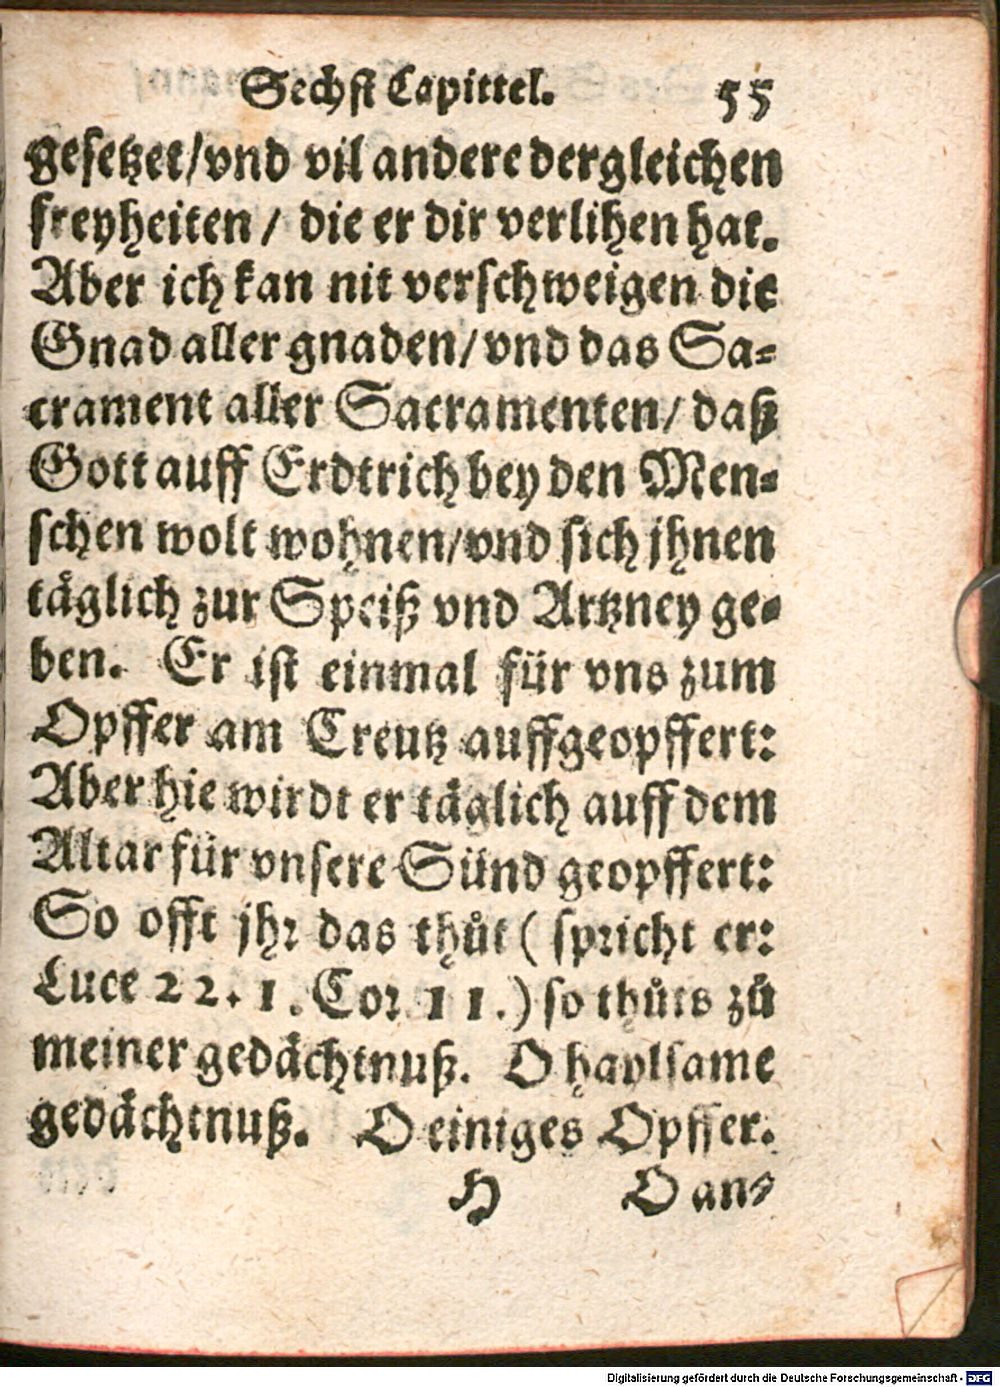 Sechst Capittel. 55
gesetzet/vnd vil andere dergleichen
freyheiten/ die er dir verlihen hat.
Aber ich kan nit verschweigen die
Gnad aller gnaden/vnd das Sa-
crament aller Sacramenten/ daß
Gott auff Erdtrich bey den Men-
schen wolt wohnen/vnd sich jhnen
täglich zur Speiß vnd Artzney ge-
ben. Er ist einmal für vns zum
Opffer am Creutz auffgeopffert:
Aber hie wirdt er täglich auff dem
Altar für vnsere Sünd geopffert:
So offt jhr das thůt ( spricht er:
Luce 22. 1. Cor 11.) so thůts zů
meiner gedächtnuß. O haylsame
gedächtnuß. O einiges Opffer.
H O an-
Digitalisierung gefördert durch die Deutsche Forschungsgemeinschaft - DFG